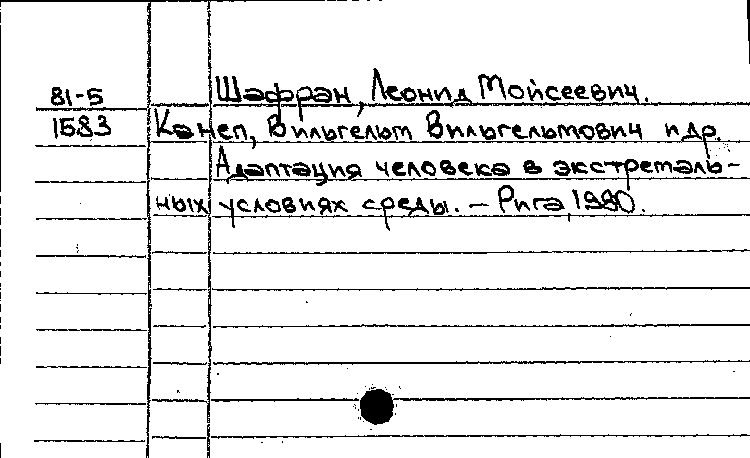 81-5 Шафран, Леонид Мойсеевич.
1583 Канеп, Вильгельм Вильгельмович и др.
Адаптация человека в экстремаль-
ных условиях среды. – Рига, 1980.